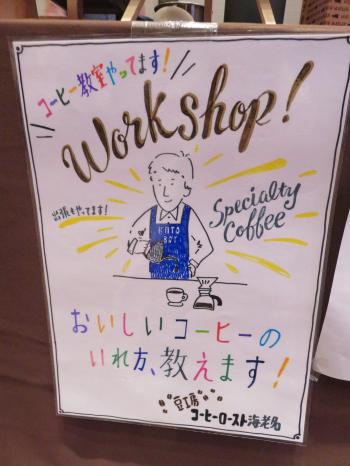 コーヒー教室やってます!
Workshop!
出張もやってます!
Specialty
Coffee
KATO
BOY
おいしいコーヒーの
いれ方、教えます!
豆工房
コーヒーロースト海老名